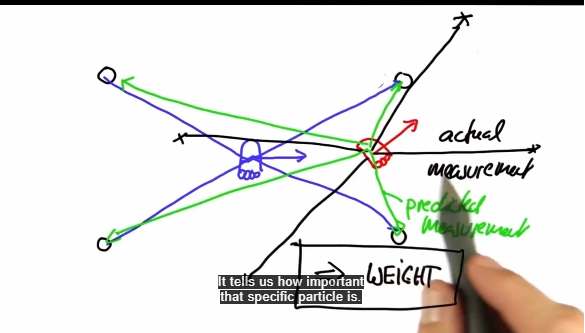 actual
measurement
predicted
measurement
⇒ WEIGHT
It tells us how important
that specific particle is.